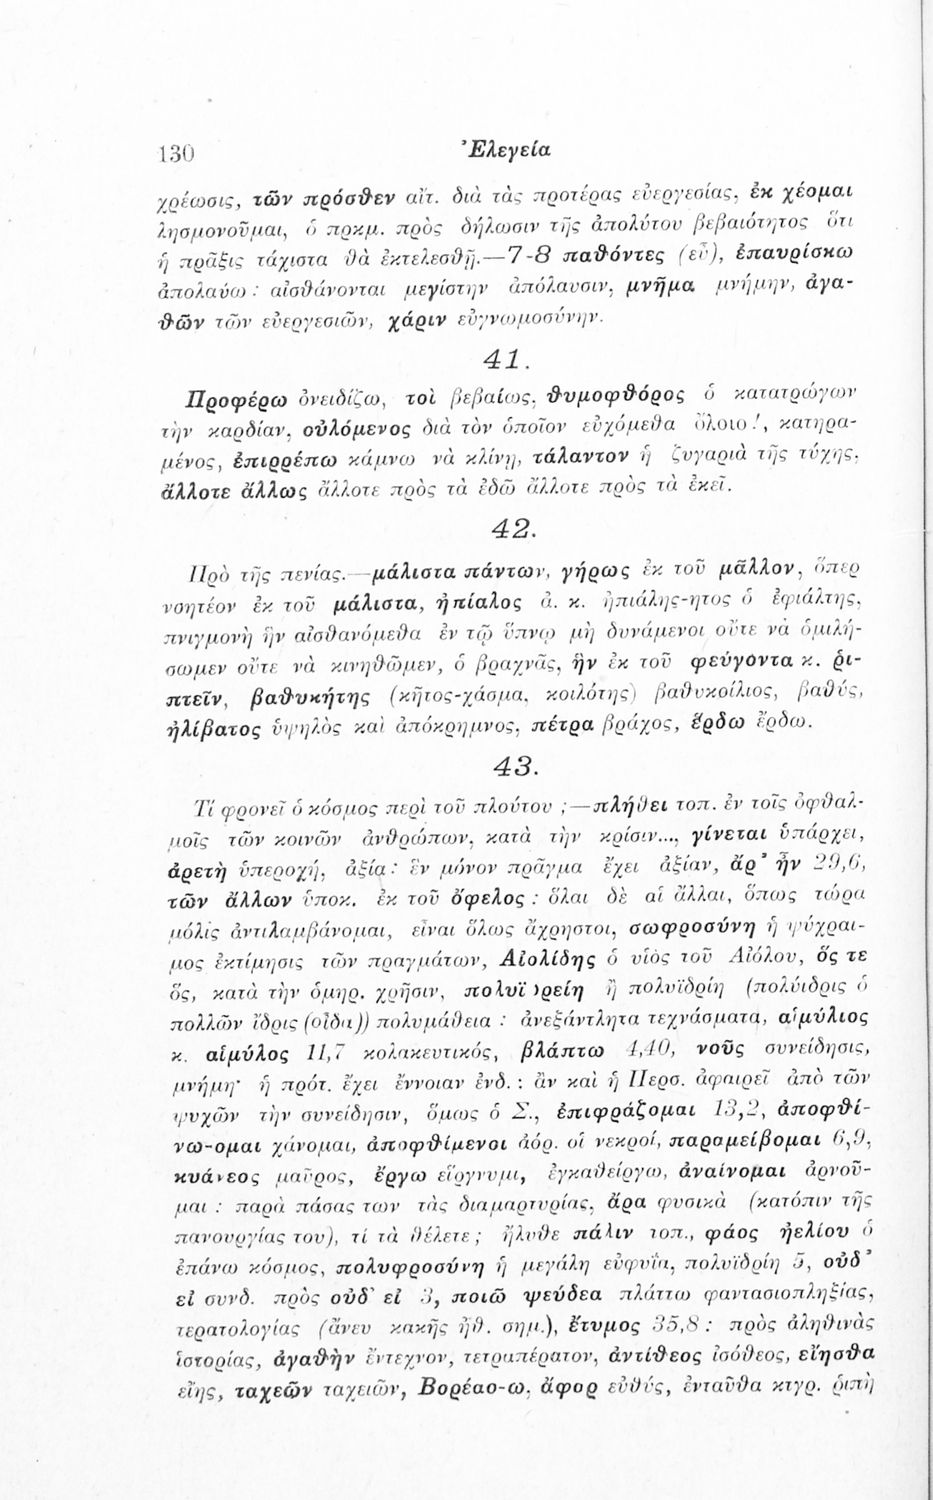 130
Ἐλεγεία
χρέωσις, τῶν πρόσθεν αἰτ. διὰ τὰς προτέρας εὐεργεσίας, ἐκ χέομαι
λησμονοῦμαι, ὁ πρκμ. πρὸς δήλωσιν τῆς ἀπολύτου βεβαιότητος ὅτι
ἡ πρᾶξις τάχιστα θὰ ἐκτελεσθῇ.—7-8 παθόντες (εὖ), ἐπαυρίσκω
ἀπολαύω : αἰσθάνονται μεγίστην ἀπόλαυσιν, μνῆμα μνήμην, ἀγα-
θῶν τῶν εὐεργεσιῶν, χάριν εὐγνωμοσύνην.
41.
Προφέρω ὀνειδίζω, τοὶ βεβαίως, θυμοφθόρος ὁ κατατρώγων
τὴν καρδίαν, οὐλόμενος διὰ τὸν ὁποῖον εὐχόμεθα ὄλοιο!, κατηρα-
μένος, ἐπιρρέπω κάμνω νὰ κλίνῃ, τάλαντον ἡ ζυγαριὰ τῆς τύχης,
ἄλλοτε ἄλλως ἄλλοτε πρὸς τὰ ἐδῶ ἄλλοτε πρὸς τὰ ἐκεῖ.
42.
Πρὸ τῆς πενίας.—μάλιστα πάντων, γήρως ἐκ τοῦ μᾶλλον, ὅπερ
νοητέον ἐκ τοῦ μάλιστα, ἠπίαλος ἀ. κ. ἠπιάλης-ητος ὁ ἐφιάλτης,
πνιγμονὴ ἣν αἰσθανόμεθα ἐν τῷ ὕπνῳ μὴ δυνάμενοι οὔτε νὰ ὁμιλή-
σωμεν οὔτε νὰ κινηθῶμεν, ὁ βραχνᾶς, ἣν ἐκ τοῦ φεύγοντα κ. ῥι-
πτεῖν, βαθυκήτης (κῆτος-χάσμα, κοιλότης) βαθυκοίλιος, βαθύς,
ἠλίβατος ὑψηλὸς καὶ ἀπόκρημνος, πέτρα βράχος, ἕρδω ἔρδω.
43.
Τί φρονεῖ ὁ κόσμος περὶ τοῦ πλούτου ;—πλήθει τοπ. ἐν τοῖς ὀφθαλ-
μοῖς τῶν κοινῶν ἀνθρώπων, κατὰ τὴν κρίσιν..., γίνεται ὑπάρχει,
ἀρετὴ ὑπεροχή, ἀξία : ἓν μόνον πρᾶγμα ἔχει ἀξίαν, ἄρ' ἦν 29,6,
τῶν ἄλλων ὑποκ. ἐκ τοῦ ὄφελος : ὅλαι δὲ αἱ ἄλλαι, ὅπως τώρα
μόλις ἀντιλαμβάνομαι, εἶναι ὅλως ἄχρηστοι, σωφροσύνη ἡ ψύχραι-
μος ἐκτίμησις τῶν πραγμάτων, Αἰολίδης ὁ υἱὸς τοῦ Αἰόλου, ὅς τε
ὅς, κατὰ τὴν ὁμηρ. χρῆσιν, ἢ πολυϊδρίη (πολύιδρις ὁ
πολλῶν ἴδρις (οἶδα)) πολυμάθεια : ἀνεξάντλητα τεχνάσματα, αἱμύλιος
κ. αἱμύλος 11,7 κολακευτικός, βλάπτω 4,40, νοῦς συνείδησις,
μνήμη· ἡ πρότ. ἔχει ἔννοιαν ἐνδ. : ἂν καὶ ἡ Περσ. ἀφαιρεῖ ἀπὸ τῶν
ψυχῶν τὴν συνείδησιν, ὅμως ὁ Σ., ἐπιφράζομαι 13,2, ἀποφθί-
νω-ομαι χάνομαι, ἀποφθίμενοι ἀόρ. οἱ νεκροί, παραμείβομαι 6,9,
κυάνεος μαῦρος, ἔργω εἴργνυμι, ἐγκαθείργω, ἀναίνομαι ἀρνοῦ-
μαι : παρὰ πάσας των τὰς διαμαρτυρίας, ἄρα φυσικὰ (κατόπιν τῆς
πανουργίας του), τί τὰ θέλετε ; ἤλυθε πάλιν τοπ., φάος ἠελίου ὁ
ἐπάνω κόσμος, πολυφροσύνη ἡ μεγάλη εὐφυΐα, πολυϊδρίη 5, οὐδ'
εἰ συνδ. πρὸς οὐδ' εἰ 3, ποιῶ ψεύδεα πλάττω φαντασιοπληξίας,
τερατολογίας (ἄνευ κακῆς ἠθ. σημ.), ἔτυμος 35,8 : πρὸς ἀληθινὰς
ἱστορίας, ἀγαθὴν ἔντεχνον, τετραπέρατον, ἀντίθεος ἰσόθεος, εἴησθα
εἴης, ταχεῶν ταχειῶν, Βορέαο-ω, ἄφαρ εὐθύς, ἐνταῦθα κτγρ. ῥιπὴ